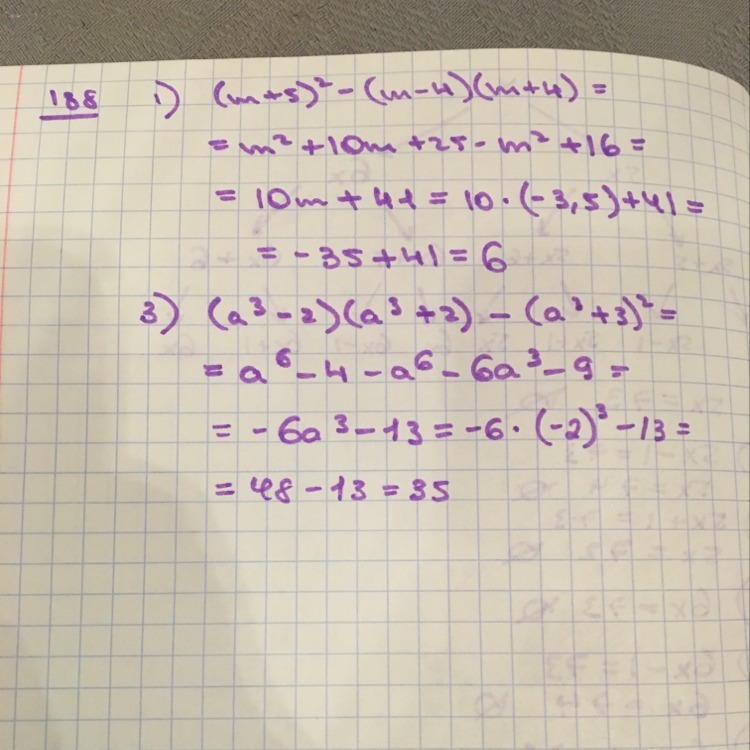 188 1) (m+5)² - (m-4)(m+4) =
= m² + 10m + 25 - m² + 16 =
= 10m + 41 = 10 · (-3,5) + 41 =
= -35 + 41 = 6
3) (a³ - 2)(a³ + 2) - (a³ + 3)² =
= a⁶ - 4 - a⁶ - 6a³ - 9 =
= -6a³ - 13 = -6 · (-2)³ - 13 =
= 48 - 13 = 35